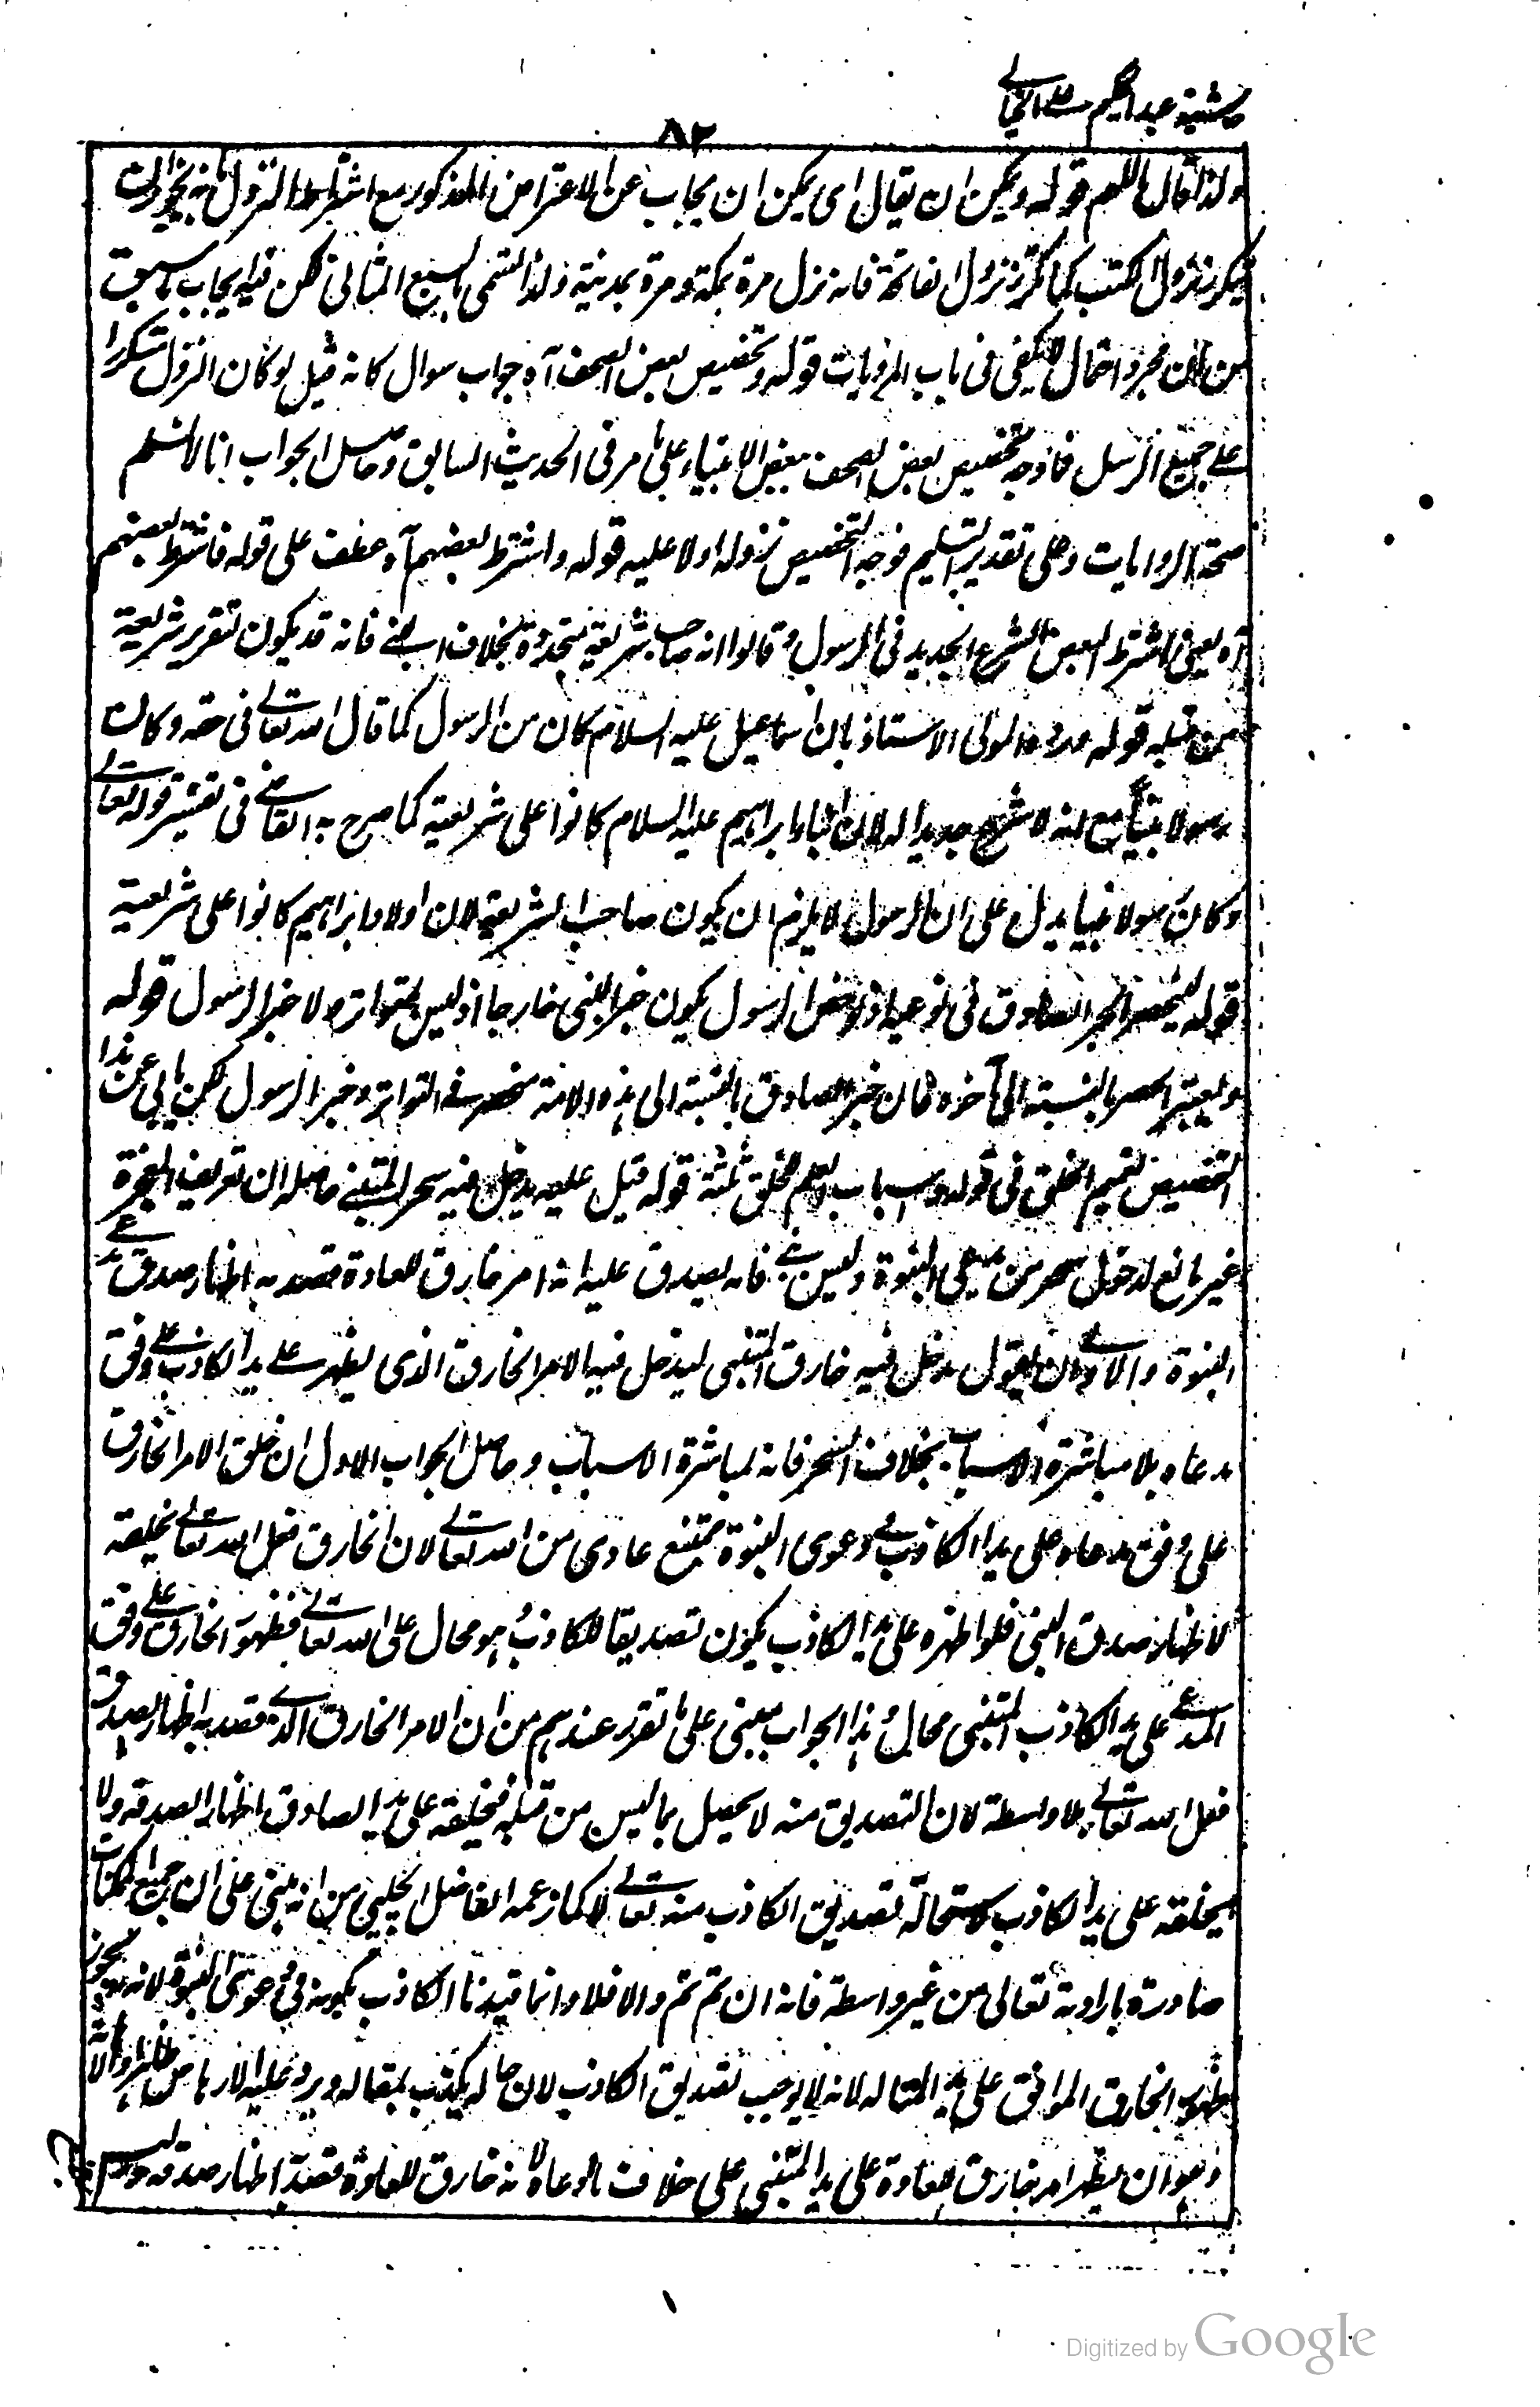 حاشية عبد الحكيم على الخيالي
٨٢
ولذا قال اللهم قوله ويمكن ان يقال اى يمكن ان يجاب عن الاعتراض المذكور مع اشتراط النزول بانه يجوز ان
يتكرر نزول الكتب كما تكرر نزول الفاتحة فانه نزل مرة بمكة ومرة بمدينة ولذا تسمى بالسبع المثانى لكن فيه يجاب ما سبق
من ان مجرد احتمال لا يكفى فى باب الروايات قوله وتخصيص بعض الصحف آه جواب سوال كانه قيل لو كان النزول متكررا
على جميع الرسل فما وجه تخصيص بعض الصحف ببعض الانبياء على ما مر فى الحديث السابق وحاصل الجواب انا لا نسلم
صحة الروايات وعلى تقدير التسليم فوجه التخصيص نزوله اولا عليه قوله واشترط بعضهم آه عطف على قوله فاشترط بعضهم
آه يعنى اشترط البعض الشرع الجديد فى الرسول وقالوا انه صاحب شريعة متجددة بخلاف النبى فانه قد يكون لتقرير شريعة
من قبله قوله ورده المولى الاستاذ بان اسماعيل عليه السلام كان من الرسول كما قال الله تعالى فى حقه وكان
رسولا نبيا مع انه لا شرع جديد له لان ابناء ابراهيم عليه السلام كانوا على شريعة كما صرح به القاضى فى تفسير قوله تعالى
وكان رسولا نبيا يدل على ان الرسول لا يلزم ان يكون صاحب الشريعة لان اولاد ابراهيم كانوا على شريعة
قوله لينحصر الخبر الصادق فى نوعيه اذ لو خص الرسول يكون خبر النبى خارجا اذ ليس بمتواتر ولا خبر الرسول قوله
ويعتبر الحصر بالنسبة الى آخره فان خبر الصادق بالنسبة الى هذه الامة منحصر فى التواتر وخبر الرسول لكن يابى عن هذا
التخصيص تعميم الخلق فى قوله واسباب العلم للخلق ثلثة قوله قيل عليه يدخل فيه سحر المتنبى حاصله ان تعريف المعجزة
غير مانع لدخول سحر من يدعى النبوة وليس بنبى فانه يصدق عليه انه امر خارق للعادة قصد به اظهار صدق مدعى
النبوة والاولى ان يقول يدخل فيه خارق المتنبى ليدخل فيه الامر الخارق الذى يظهر على يد الكاذب على وفق
مدعاه بلا مباشرة الاسباب بخلاف السحر فانه لمباشرة الاسباب وحاصل الجواب الاول ان خلق الامر الخارق
على وفق مدعاه على يد الكاذب فى دعوى النبوة ممتنع عادى من الله تعالى لان الخارق فعل الله تعالى يخلقه
لاظهار صدق النبى فلو اظهره على يد الكاذب يكون تصديقا للكاذب وهو محال على الله تعالى فظهور الخارق على وفق
المدعى على يد الكاذب المتنبى محال وهذا الجواب مبنى على ما تقرر عندهم من ان الامر الخارق الذى قصد به اظهار الصدق
فعل الله تعالى بلا واسطة لان التصديق منه لا يحصل بما ليس من قبله فيخلقه على يد الصادق اظهارا لصدقه ولا
يخلقه على يد الكاذب لاستحالة تصديق الكاذب منه تعالى لا كما زعمه الفاضل الچلپى من انه مبنى على ان جميع الممكنات
صادرة بارادته تعالى من غير واسطة فانه ان تم تم والا فلا وانما قيدنا الكاذب بكونه فى دعوى النبوة لانه يجوز
ظهور الخارق الموافق على يد المتأله لانه لا يوجب تصديق الكاذب لان حاله يكذب بمقاله ويرد عليه الارهاص
وهو ان يظهر امر خارق للعادة على يد المتنبى على خلاف ما ادعاه لانه خارق للعادة قصد به اظهار صدقه وليس
Digitized by Google